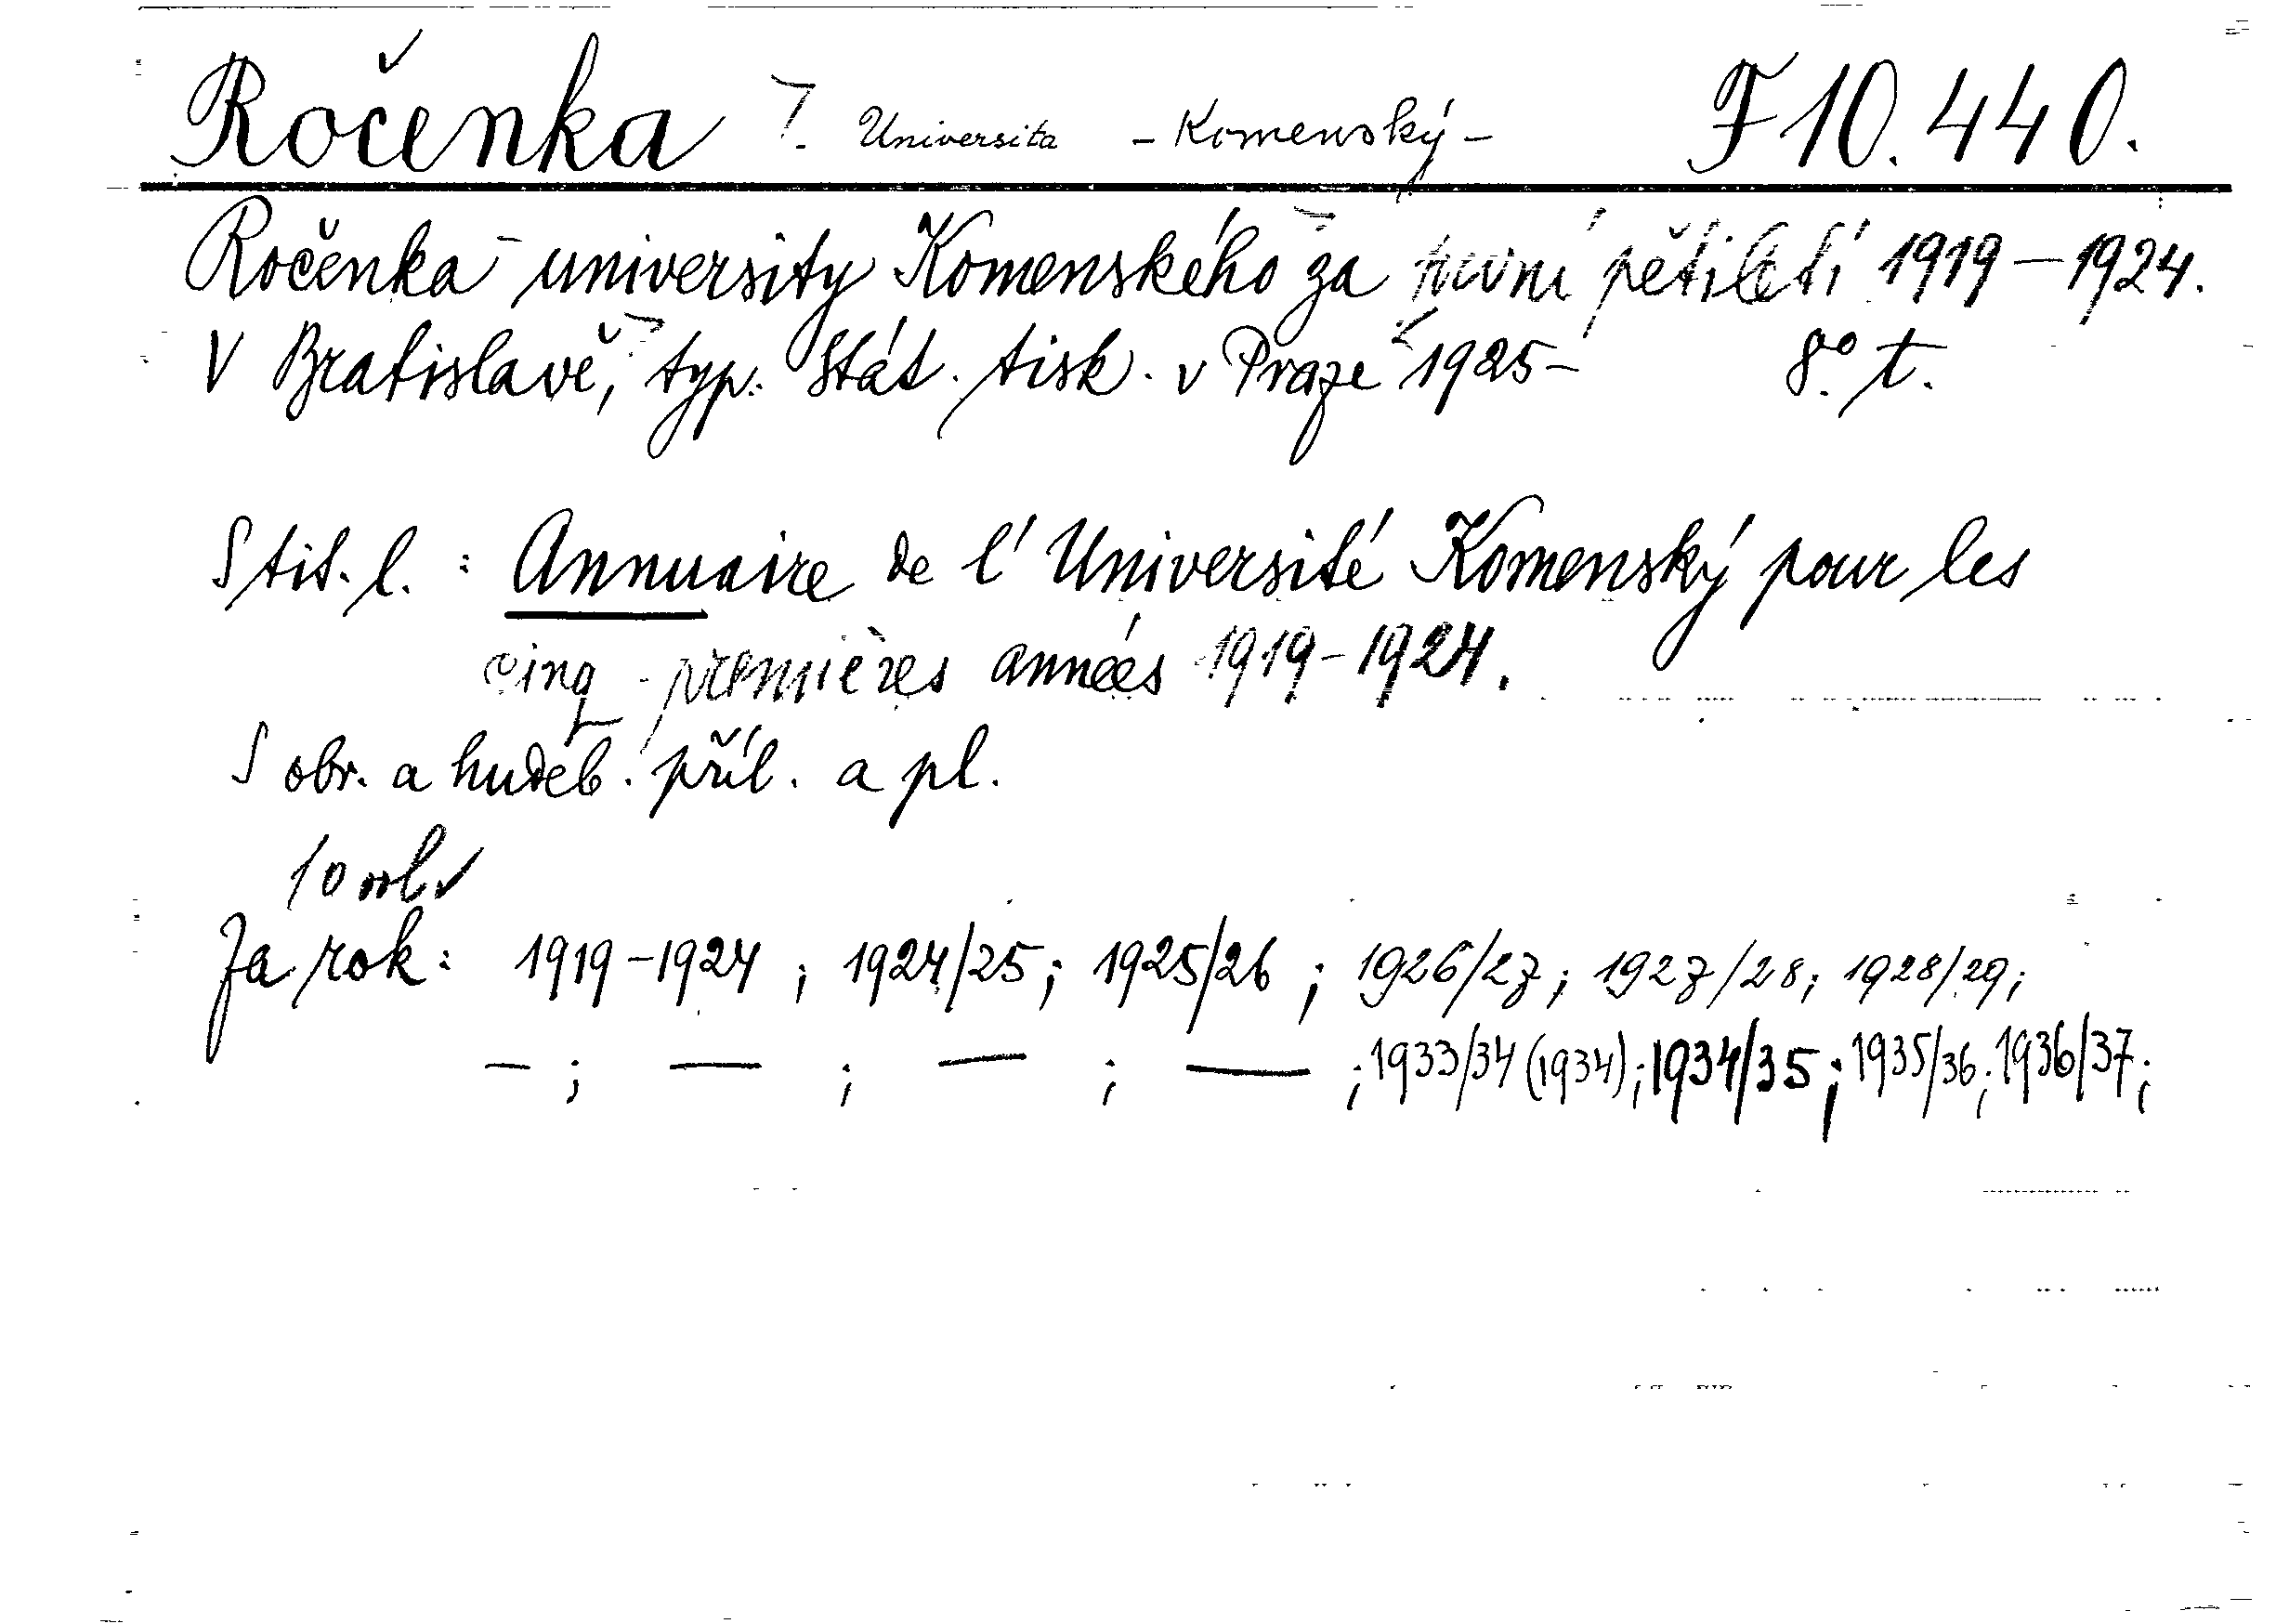 Ročenka 7. Universita - Komenský - F 10.440.
Ročenka university Komenského za první pětiletí 1919 – 1924.
V Bratislavě, typ. Stát. tisk. v Praze 1925- 8.° t.
S tit. l. : Annuaire de l'Université Komenský pour les
cinq premières années 1919-1924.
S obr. a hudeb. příl. a pl.
10 vol.
Za rok: 1919-1924 ; 1924/25; 1925/26 ; 1926/27; 1927/28; 1928/29;
– ; — ; — ; — ; 1933/34 (1934); 1934/35; 1935/36; 1936/37;